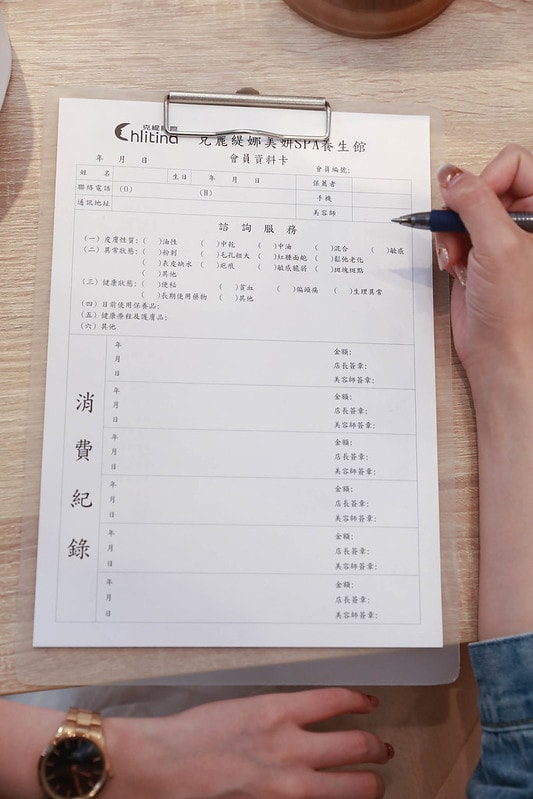 克緹國際
Chlitina
克麗緹娜美妍SPA養生館
會員資料卡
年 月 日 會員編號:
姓 名 生日 年 月 日 保薦者
聯絡電話 (O) (H) 手機
通訊地址 美容師
諮詢服務
(一)皮膚性質:( )油性 ( )中乾 ( )中油 ( )混合 ( )敏感
(二)異常狀態:( )粉刺 ( )毛孔粗大 ( )紅腫面皰 ( )鬆弛老化
( )表皮缺水 ( )疤痕 ( )敏感脆弱 ( )斑塊斑點
( )其他
(三)健康狀態:( )便秘 ( )貧血 ( )偏頭痛 ( )生理異常
( )長期使用藥物 ( )其他
(四)目前使用保養品:
(五)健康療程及護膚品:
(六)其他
消費紀錄
年 金額:
月 店長簽章:
日 美容師簽章:
年 金額:
月 店長簽章:
日 美容師簽章:
年 金額:
月 店長簽章:
日 美容師簽章:
年 金額:
月 店長簽章:
日 美容師簽章:
年 金額:
月 店長簽章:
日 美容師簽章:
年 金額:
月 店長簽章:
日 美容師簽章: